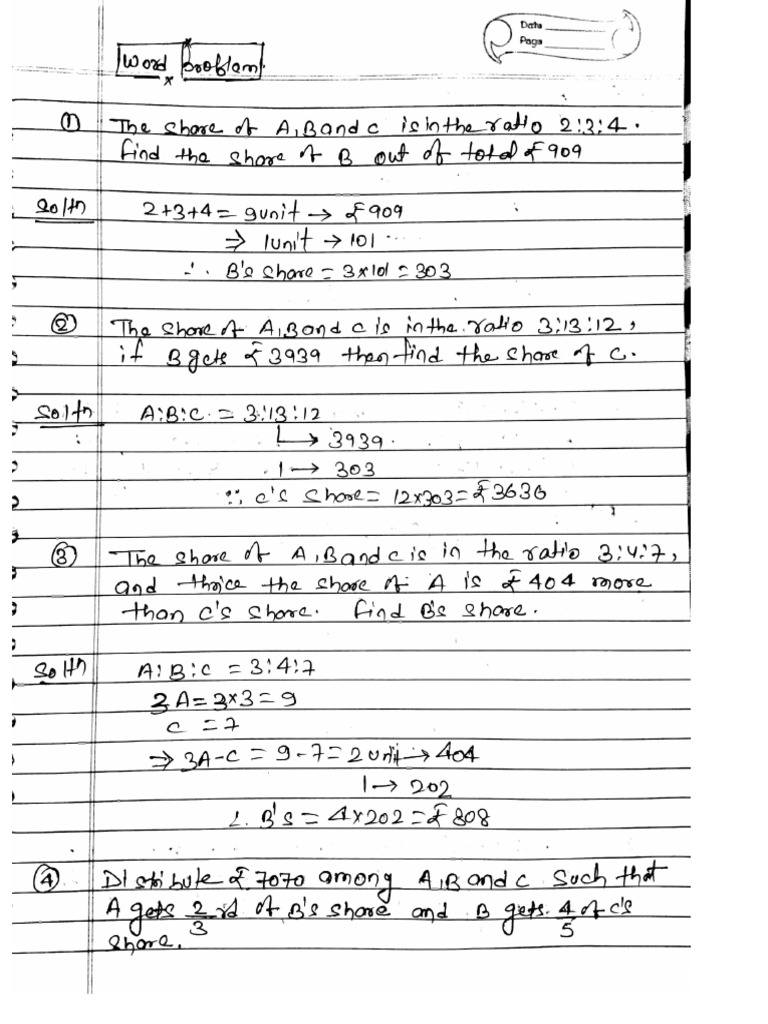 Date
Page
Word Problem
① The share of A, B and C is in the ratio 2:3:4.
find the share of B out of total ₹909
Sol‍n 2+3+4 = 9unit → ₹909
⇒ 1unit → 101
∴ B's Share = 3×101 = 303
② The Share of A, B and C is in the ratio 3:13:12,
if B gets ₹3939 then find the share of C.
Soln A:B:C = 3:13:12
↳ 3939.
1 → 303
∵ C's Share = 12×303 = ₹3636
③ The share of A, B and C is in the ratio 3:4:7,
and thrice the share of A is ₹404 more
than C's share. find B's share.
Soln A:B:C = 3:4:7
3A = 3×3 = 9
C = 7
⇒ 3A-C = 9-7 = 2unit → 404
1 → 202
∴ B's = 4×202 = ₹808
④ Distribute ₹7070 among A, B and C Such that
A gets 2/3 rd of B's share and B gets 4/5 of C's
share.